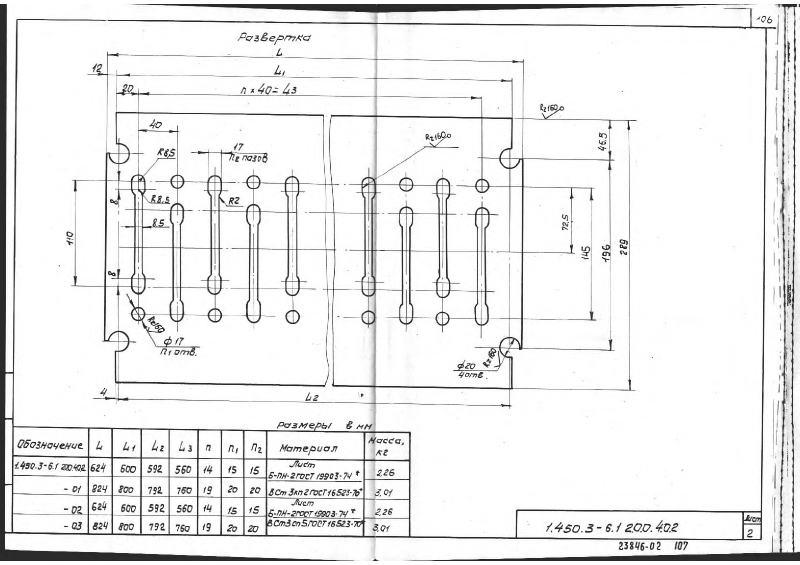 106
Развертка
L
12
L1
20
n × 40 = L3
40
17
n2 пазов
Rz160
Rz160
46.5
R8,5
R8.5
R2
8
8.5
110
8
72,5
145
196
289
Rz160
ф17
n1 отв.
Rz160
ф20
4отв.
4
L2
размеры в мм
Обозначение L L1 L2 L3 n n1 n2 Материал Масса, кг
1.450.3-6.1 200.402 624 600 592 560 14 15 15 Лист Б-ПН-2 ГОСТ 19903-74* 2,26
-01 824 800 792 760 19 20 20 ВСт3кп2 ГОСТ 16523-70* 3,01
-02 624 600 592 560 14 15 15 Лист Б-ПН-2 ГОСТ 19903-74* 2,26
-03 824 800 792 760 19 20 20 ВСт3сп5 ГОСТ 16523-70* 3,01
1.450.3-6.1 20.0.402
Лист
2
23846-02 107